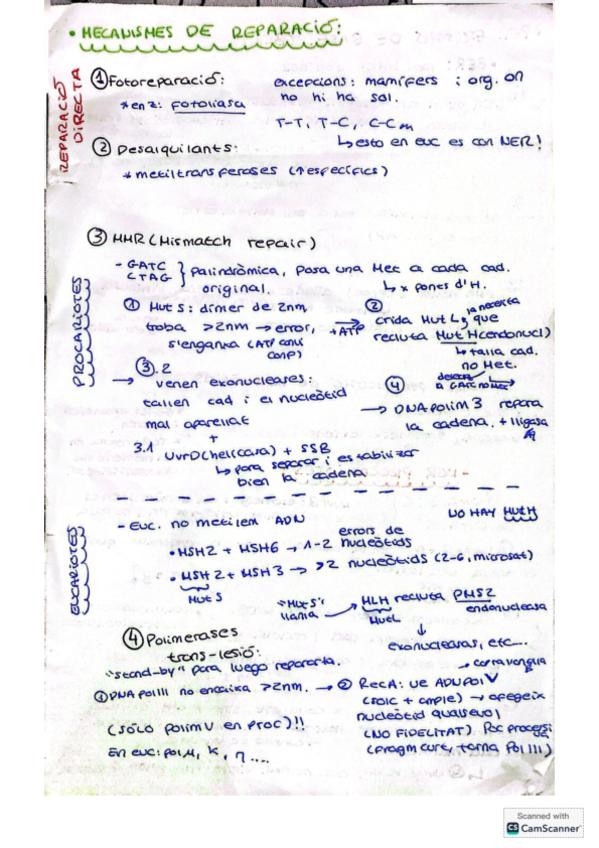 • MECANISMES DE REPARACIÓ:
REPARACIÓ DIRECTA
① Fotoreparació:
* enz: fotoliasa
excepcions: mamífers i org. on
no hi ha sol.
T-T, T-C, C-C
↳ esto en euc es con NER!
② Desalquilants:
* metiltransferases (↑ específics)
③ MMR (Mismatch repair)
PROCARIOTES
- GATC
CTAG } palindròmica, posa una Met a cada cad.
original.
↳ x ponts d'H.
① Mut S: dímer de 2nm
troba >2nm → error,
s'enganxa (ATP
+ATP
②
crida Mut L, que
recluta Mut H (endonucl)
↳ talla cad.
no Met.
③.2
→ venen exonucleases:
tallen cad i el nucleòtid
mal aparellat
+
3.1. UvrD (helicasa) + SSB
↳ para separar i estabilizar
bien la cadena
④
→ DNA polim 3 repara
la cadena. + lligasa
EUCARIOTES
- Euc. no metilem ADN
NO HAY MutH
• MSH2 + MSH6 → 1-2 errors de nucleòtids
• MSH2 + MSH3 → >2 nucleòtids (2-6, microsat)
Mut S
"MutS" llama → MLH recluta PMS2
MutL
endonucleasa
↓
exonucleasas, etc...
④ Polimerases
trans-lesió:
"stand-by" para luego repararla.
① DNA pol III no encaixa >2nm. → ② RecA: ve ADN pol V
(solc + ample) → afegeix
nucleòtid qualsevol
(NO FIDELITAT) Poc processi
(fragm curt, torna Pol III)
(SÓLO polim V en PROC)!!
En euc: pol μ, κ, η ....
Scanned with
CS CamScanner